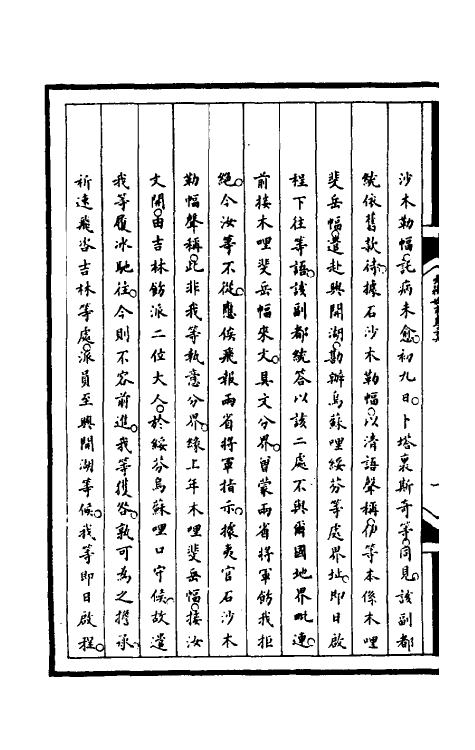 沙木勒幅。託病未愈。初九日。卜塔裏斯奇等同見。該副都
統依舊款待。據石沙木勒幅。以清語聲稱。伊等本係木哩
斐岳幅。遣赴興開湖。勘辦烏蘇哩綏芬等處界址。即日啟
程下往等語。該副都統答以該二處不與爾國地界毗連。
前接木哩斐岳幅來文。具文分界。曾蒙兩省將軍飭我拒
絕。今汝等不從。應俟飛報兩省將軍指示。據夷官石沙木
勒幅聲稱。此非我等執意分界。緣上年木哩斐岳幅。接汝
文開。由吉林飭派二位大人。於綏芬烏蘇哩口守候。故遣
我等履冰馳往。今則不容前進。我等獲咎。孰可為之擔承。
祈速飛咨吉林等處。派員至興開湖等候。我等即日啟程。